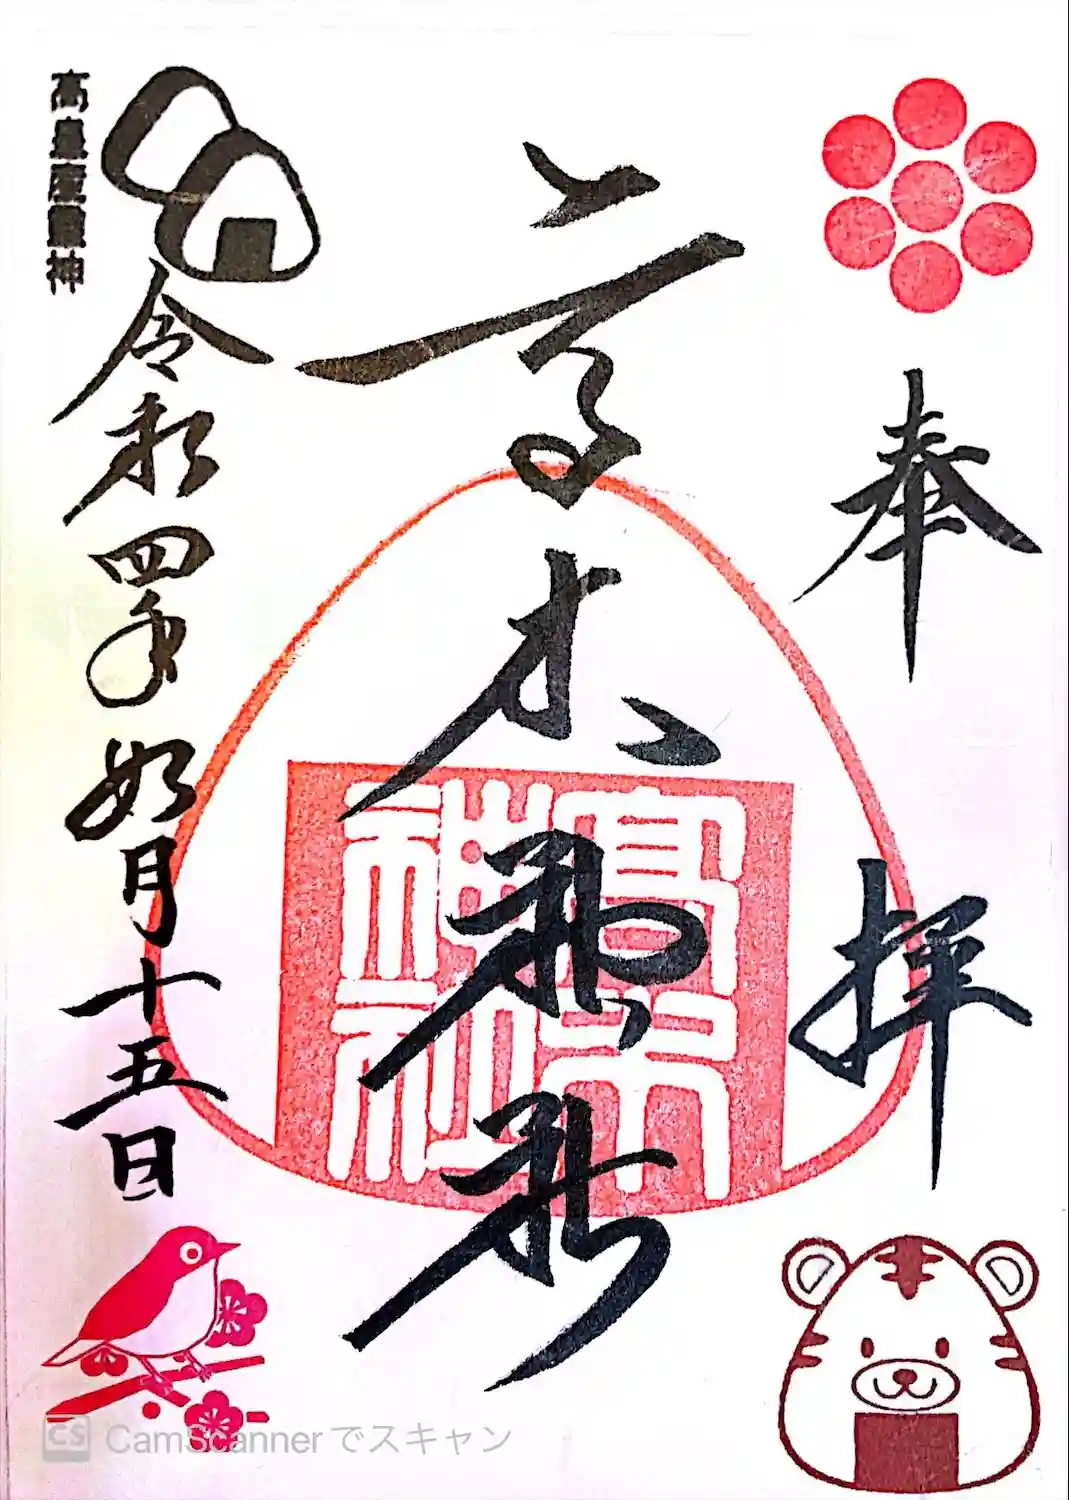 奉拝
高木神社
高木神社
高皇産靈神
令和四年如月十五日
CS CamScannerでスキャン